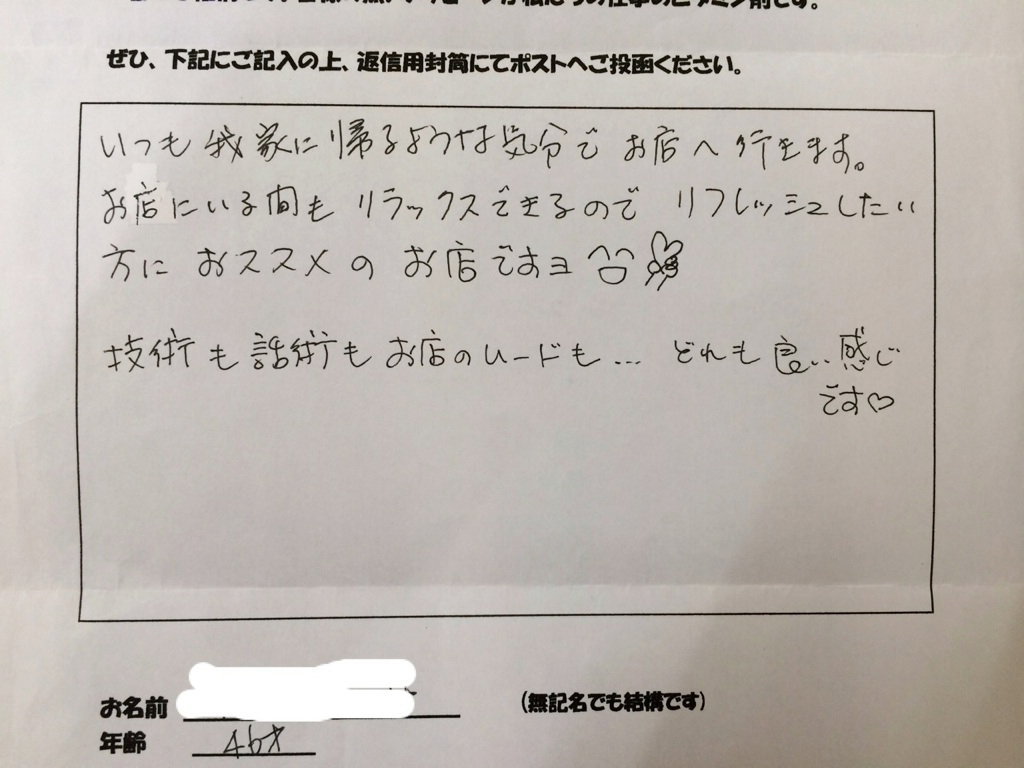 ぜひ、下記にご記入の上、返信用封筒にてポストへご投函ください。
いつも我家に帰るような気分でお店へ行きます。
お店にいる間もリラックスできるので リフレッシュしたい
方に おススメの お店ですヨ
技術も話術もお店のムードも… どれも良い感じ
です♡
お名前
(無記名でも結構です)
年齢 46才